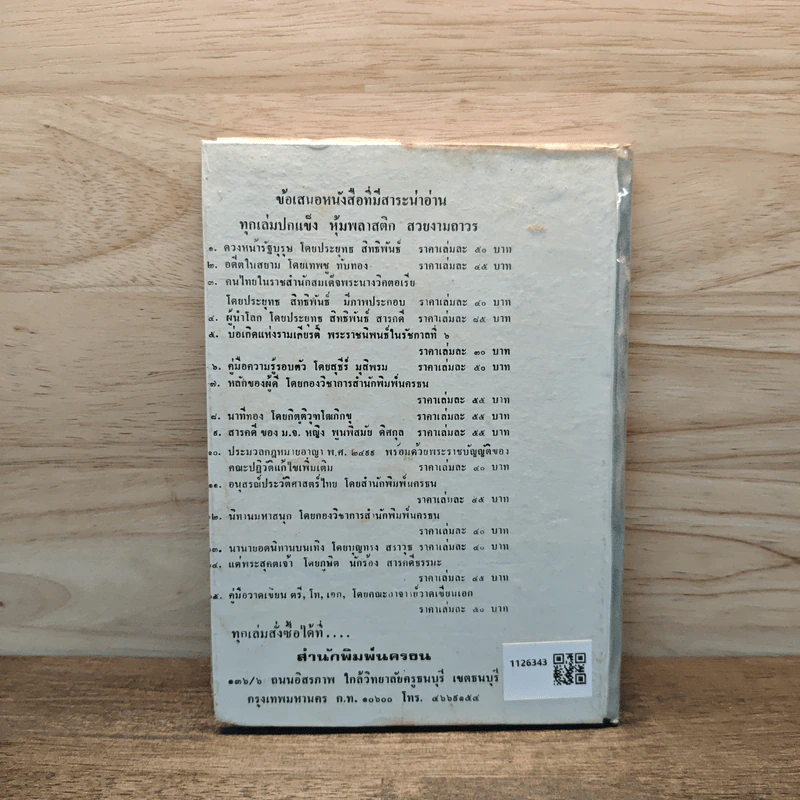 ข้อเสนอหนังสือที่มีสาระน่าอ่าน
ทุกเล่มปกแข็ง หุ้มพลาสติก สวยงามถาวร
๑. ดวงหน้ารัฐบุรุษ โดยประยุทธ สิทธิพันธ์ ราคาเล่มละ ๕๐ บาท
๒. อดีตในสยาม โดยเทพชู ทับทอง ราคาเล่มละ ๔๕ บาท
๓. คนไทยในราชสำนักสมเด็จพระนางวิคตอเรีย
โดยประยุทธ สิทธิพันธ์ มีภาพประกอบ ราคาเล่มละ ๔๐ บาท
๔. ผู้นำโลก โดยประยุทธ สิทธิพันธ์ สารคดี ราคาเล่มละ ๘๕ บาท
๕. บ่อเกิดแห่งรามเกียรติ์ พระราชนิพนธ์ในรัชกาลที่ ๖
ราคาเล่มละ ๓๐ บาท
๖. คู่มือความรู้รอบตัว โดยสุธีร์ มุสิพรม ราคาเล่มละ ๕๐ บาท
๗. หลักของผู้ดี โดยกองวิชาการสำนักพิมพ์นครธน
ราคาเล่มละ ๕๕ บาท
๘. นาทีทอง โดยกิตติวุฑโฒภิกขุ ราคาเล่มละ ๕๕ บาท
๙. สารคดี ของ ม.จ. หญิง พูนพิสมัย ดิศกุล ราคาเล่มละ ๕๕ บาท
๑๐. ประมวลกฎหมายอาญา พ.ศ. ๒๔๙๙ พร้อมด้วยพระราชบัญญัติของ
คณะปฏิวัติแก้ไขเพิ่มเติม ราคาเล่มละ ๔๐ บาท
๑๑. อนุสรณ์ประวัติศาสตร์ไทย โดยสำนักพิมพ์นครธน
ราคาเล่มละ ๔๕ บาท
๒. นิทานมหาสนุก โดยกองวิชาการสำนักพิมพ์นครธน
ราคาเล่มละ ๔๐ บาท
๓. นานายอดนิทานบันเทิง โดยบุญทรง สราวุธ ราคาเล่มละ ๔๐ บาท
๔. แด่พระสุคตเจ้า โดยภูษิต นักร้อง สารคดีธรรมะ
ราคาเล่มละ ๔๕ บาท
๕. คู่มือวาดเขียน ตรี, โท, เอก, โดยคณะอาจารย์วาดเขียนเอก
ราคาเล่มละ ๕๐ บาท
ทุกเล่มสั่งซื้อได้ที่....
สำนักพิมพ์นครธน
๑๓๖/๖ ถนนอิสรภาพ ใกล้วิทยาลัยครูธนบุรี เขตธนบุรี
กรุงเทพมหานคร ก.ท. ๑๐๖๐๐ โทร. ๔๖๖๙๑๕๔
1126343